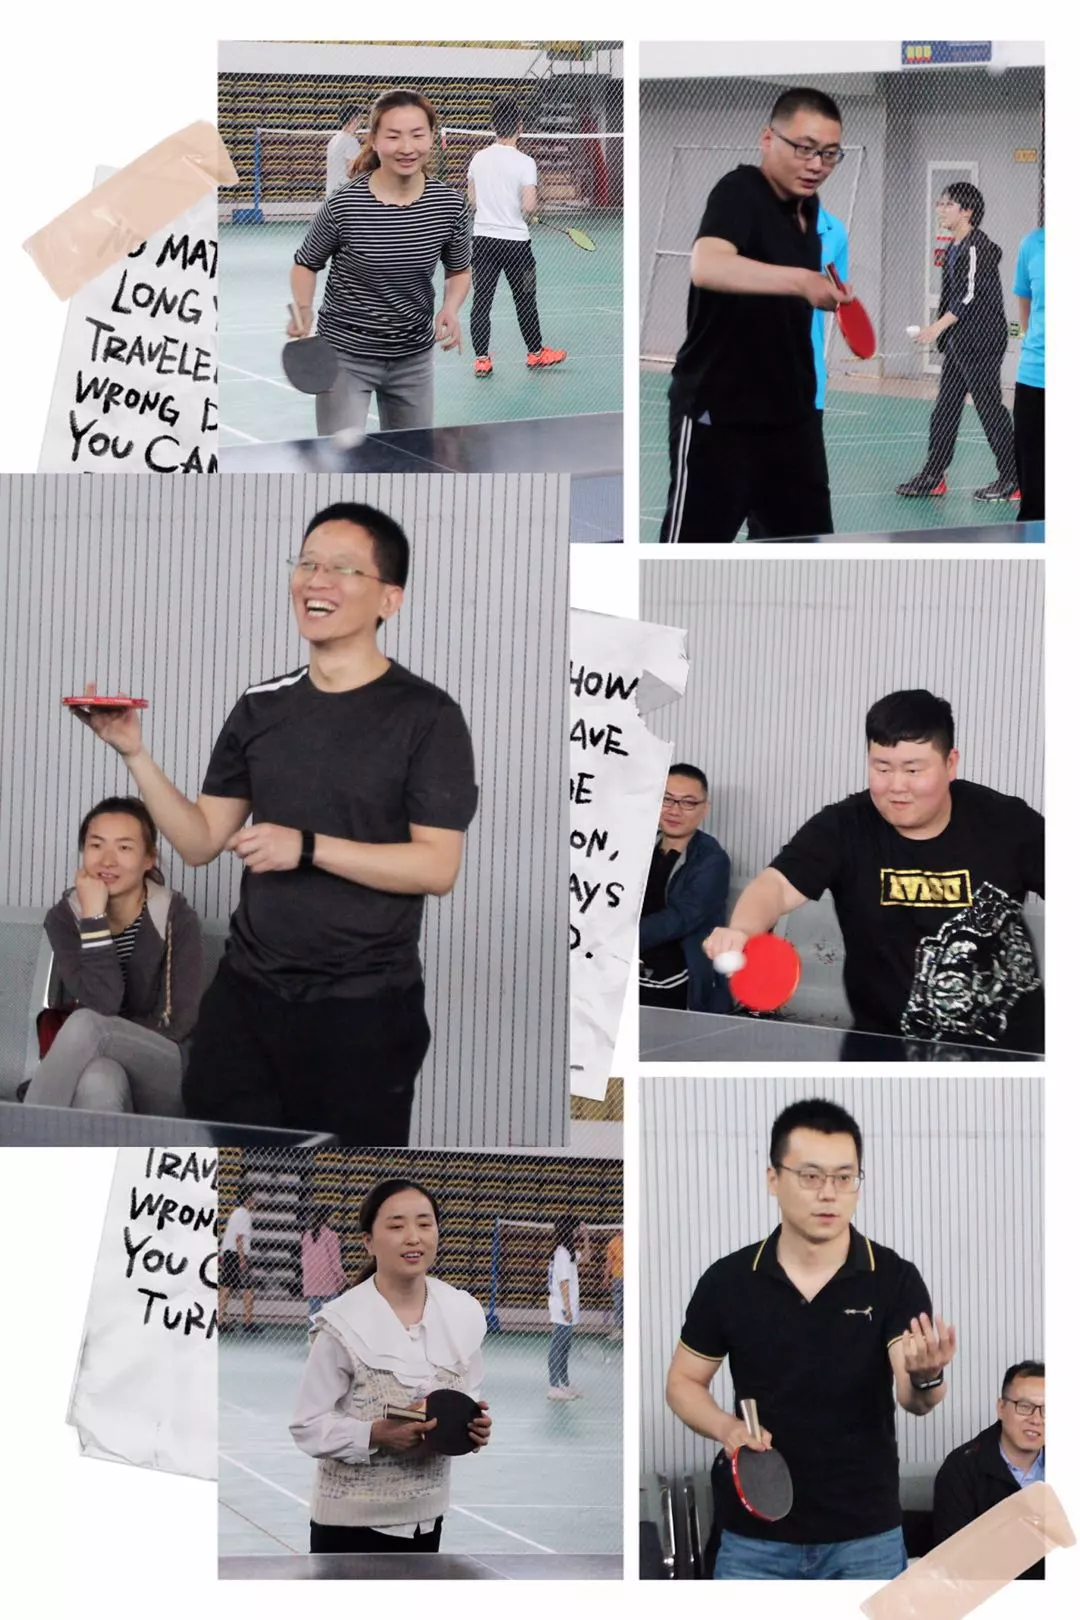 MAT
LONG
TRAVELE
WRONG D
YOU CAN
HOW
AVE
DE
ON,
AYS
D.
TRAV
WRON
YOU C
TURN
EVISU